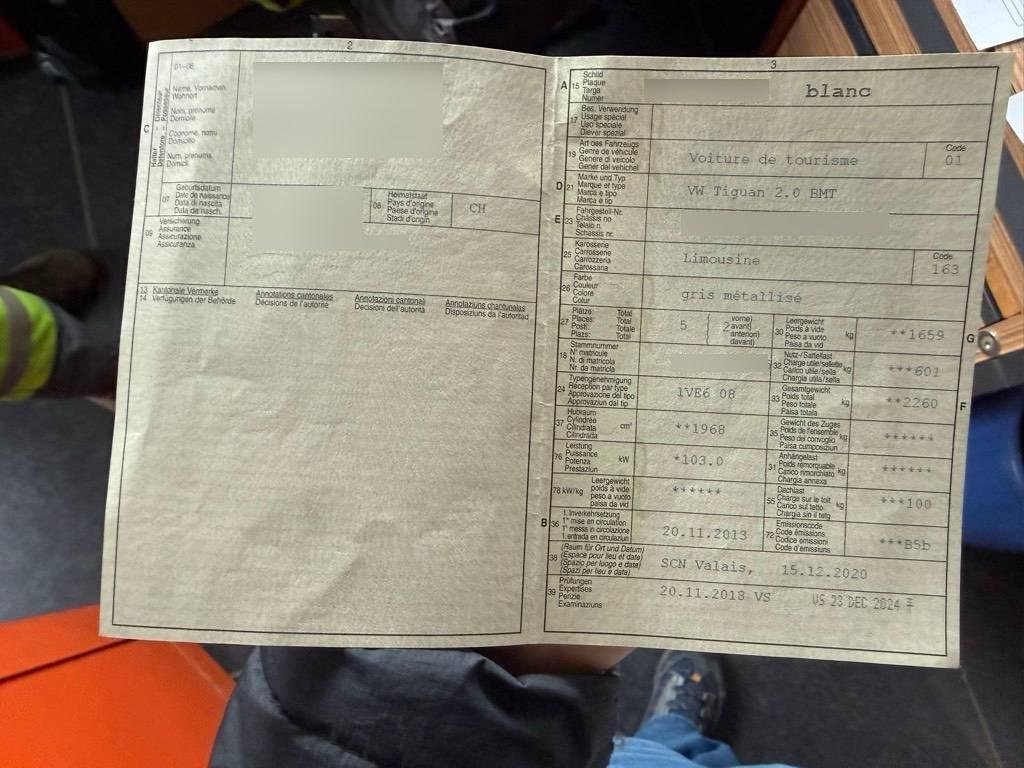 2
01–06
C
Halter Detentore Détenteur Possessur
Name, Vornamen
Wohnort
Nom, prénoms
Domicile
Cognome, nomi
Domicilio
Num, prenums
Domicil
07
Geburtsdatum
Date de naissance
Data di nascita
Data da nasch.
08
Heimatstaat
Pays d'origine
Paese d'origine
Stadi d'origin
CH
09
Versicherung
Assurance
Assicurazione
Assicuranza
13
14
Kantonale Vermerke
Verfügungen der Behörde
Annotations cantonales
Décisions de l'autorité
Annotazioni cantonali
Decisioni dell'autorità
Annotaziuns chantunalas
Disposiziuns da l'autoritad
3
A 15
Schild
Plaque
Targa
Numer
blanc
17
Bes. Verwendung
Usage spécial
Uso speciale
Diever spezial
19
Art des Fahrzeugs
Genre de véhicule
Genere di veicolo
Gener dal vehichel
Voiture de tourisme
Code
01
D 21
Marke und Typ
Marque et type
Marca e tipo
Marca e tip
VW Tiguan 2.0 BMT
E 23
Fahrgestell-Nr.
Châssis no
Telaio n.
Schassis nr.
25
Karosserie
Carrosserie
Carrozzeria
Carossaria
Limousine
Code
163
26
Farbe
Couleur
Colore
Colur
gris métallisé
27
Plätze: Total
Places: Total
Posti: Totale
Plazs: Total
5
2
vorne)
avant)
anteriori)
davant)
30
Leergewicht
Poids à vide
Peso a vuoto
Paisa da vid
kg
**1659
G
18
Stammnummer
N° matricule
N. di matricola
Nr. da matricla
32
Nutz-/Sattellast
Charge utile/sellette
Carico utile/sella
Chargia utila/sella
kg
***601
24
Typengenehmigung
Réception par type
Approvazione del tipo
Approvaziun dal tip
1VE6 08
33
Gesamtgewicht
Poids total
Peso totale
Paisa totala
kg
**2260
F
37
Hubraum
Cylindrée
Cilindrata
Cilindrada
cm³
**1968
35
Gewicht des Zuges
Poids de l'ensemble
Peso del convoglio
Paisa cumposiziun
kg
******
76
Leistung
Puissance
Potenza
Prestaziun
kW
*103.0
31
Anhängelast
Poids remorquable
Carico rimorchiato
Chargia annexa
kg
******
78 kW/kg
Leergewicht
poids à vide
peso a vuoto
paisa da vid
******
55
Dachlast
Charge sur le toit
Carico sul tetto
Chargia sin il tetg
kg
***100
B 36
1. Inverkehrsetzung
1re mise en circulation
1a messa in circolazione
1. entrada en circulaziun
20.11.2013
72
Emissionscode
Code émissions
Codice emissioni
Code d'emissiuns
***B5b
38
(Raum für Ort und Datum)
(Espace pour lieu et date)
(Spazio per luogo e data)
(Spazi per lieu e data)
SCN Valais, 15.12.2020
39
Prüfungen
Expertises
Perizie
Examinaziuns
20.11.2018 VS
VS 23 DEC 2024